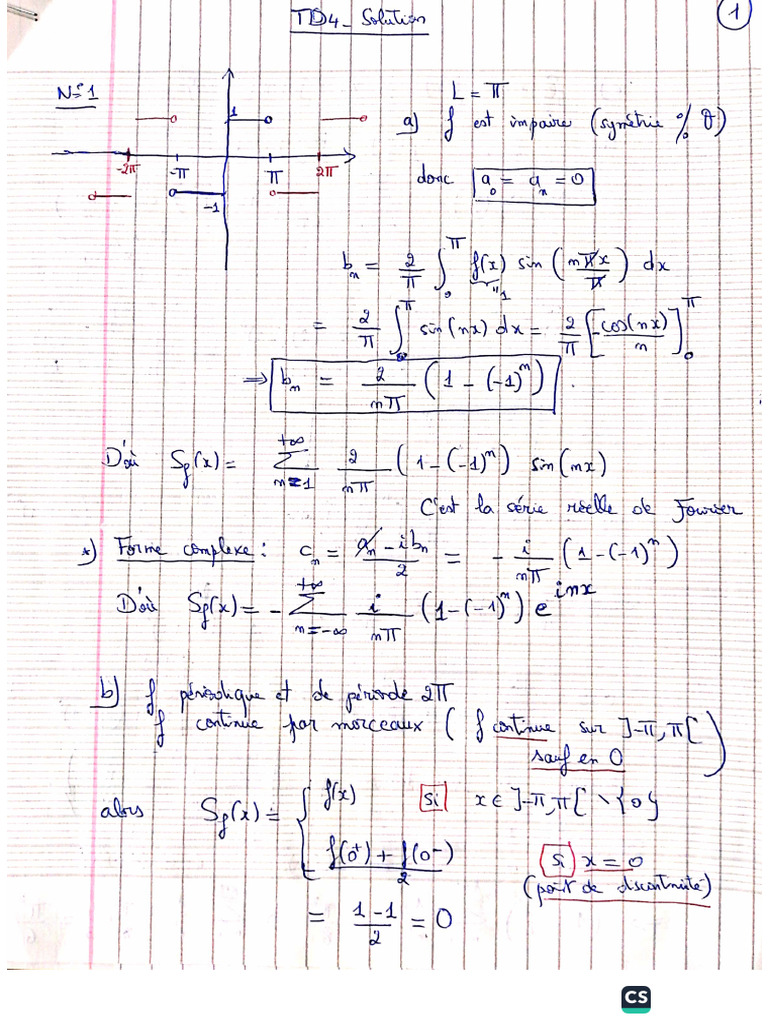 TD4_ Solution
1
N°1
1
-2π -π π 2π
-1
L = π
a) f est impaire (symétrie % 0)
donc a_0 = a_n = 0
b_n = 2/π ∫_0^π f(x) sin (nπx/π) dx
"1
= 2/π ∫_0^π sin(nx) dx = 2/π [-cos(nx)/n]_0^π
⇒ b_n = 2/nπ (1 - (-1)^n).
D'où S_f(x) = ∑_{n=1}^{+∞} 2/nπ (1 - (-1)^n) sin(nx)
C'est la série réelle de Fourier
*) Forme complexe : c_n = (a_n - i b_n)/2 = - i/nπ (1 - (-1)^n)
D'où S_f(x) = - ∑_{n=-∞}^{+∞} i/nπ (1 - (-1)^n) e^{inx}
b) f périodique et de période 2π
f continue par morceaux ( f continue sur ]-π, π[
sauf en 0 )
alors S_f(x) = { f(x) si x ∈ ]-π, π[ \ {0}
(f(0⁺) + f(0⁻))/2 si x = 0
(point de discontinuité)
= (1 - 1)/2 = 0
CS